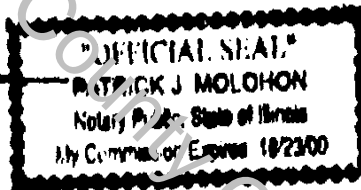 "OFFICIAL SEAL"
PATRICK J MOLOHON
Notary Public State of Illinois
My Commission Expires 10/23/00
County